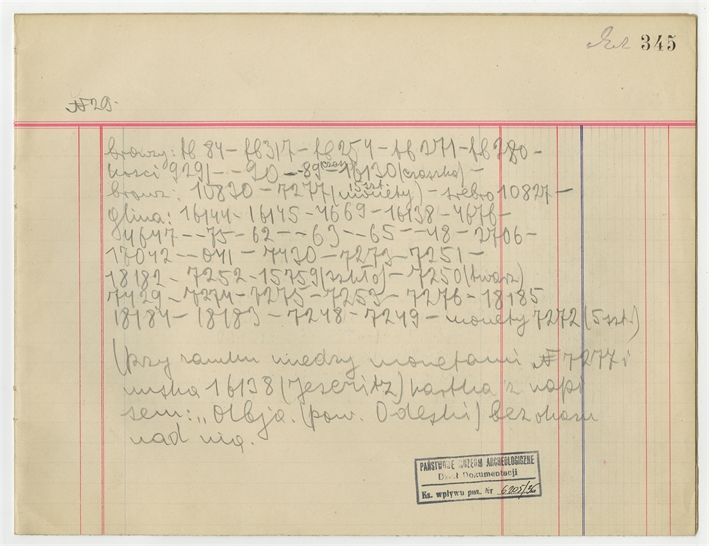 345
№ 29.
bronzy: 16 84 – 16317 – 16254 – 16271 – 16280 –
kości 9291 – – 90 – – 89 – 16130 (czaszka) –
bronz: 10830 – 7277 (monety) – srebro 10827 –
glina: 16144 – 16145 – 4669 – 16138 – 4676 –
4647 – – 75 – 62 – – 63 – – 65 – – 48 – 2706 –
17042 – – 041 – 7430 – 7273 – 7251 –
18182 – 7252 – 15759 (szkło) – 7250 (twarz)
7429 – 7274 – 7275 – 7253 – 7276 – 18185
18184 – 18183 – 7248 – 7249 – monety 7272 (5 szt.)
(przy zamku między monetami № 7277 i
miską 16138 (Jezeritz) kartka z napi
sem: „Olbja. (pow. Odeski) bez okazu
nad nią.
PAŃSTWOWE MUZEUM ARCHEOLOGICZNE
Dział Dokumentacji
Ks. wpływu poz. Nr 6205/36